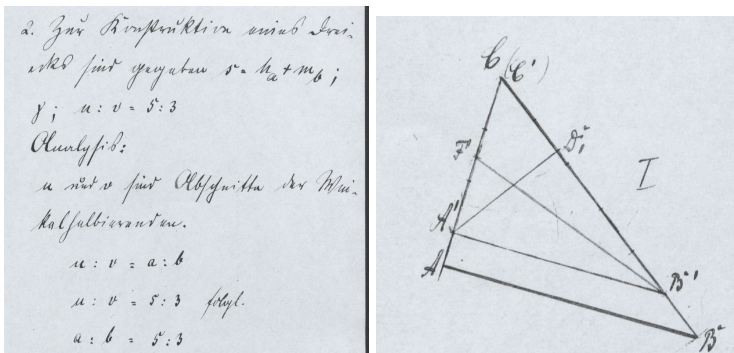 2. Zur Konstruktion eines Drei-
ecks sind gegeben s = h_a + m_b ;
γ ; u : v = 5 : 3
Analysis:
u und v sind Abschnitte der Win-
kelhalbierenden.
u : v = a : b
u : v = 5 : 3 folgl.
a : b = 5 : 3
C (C')
F'
D'
I
A'
A
B'
B